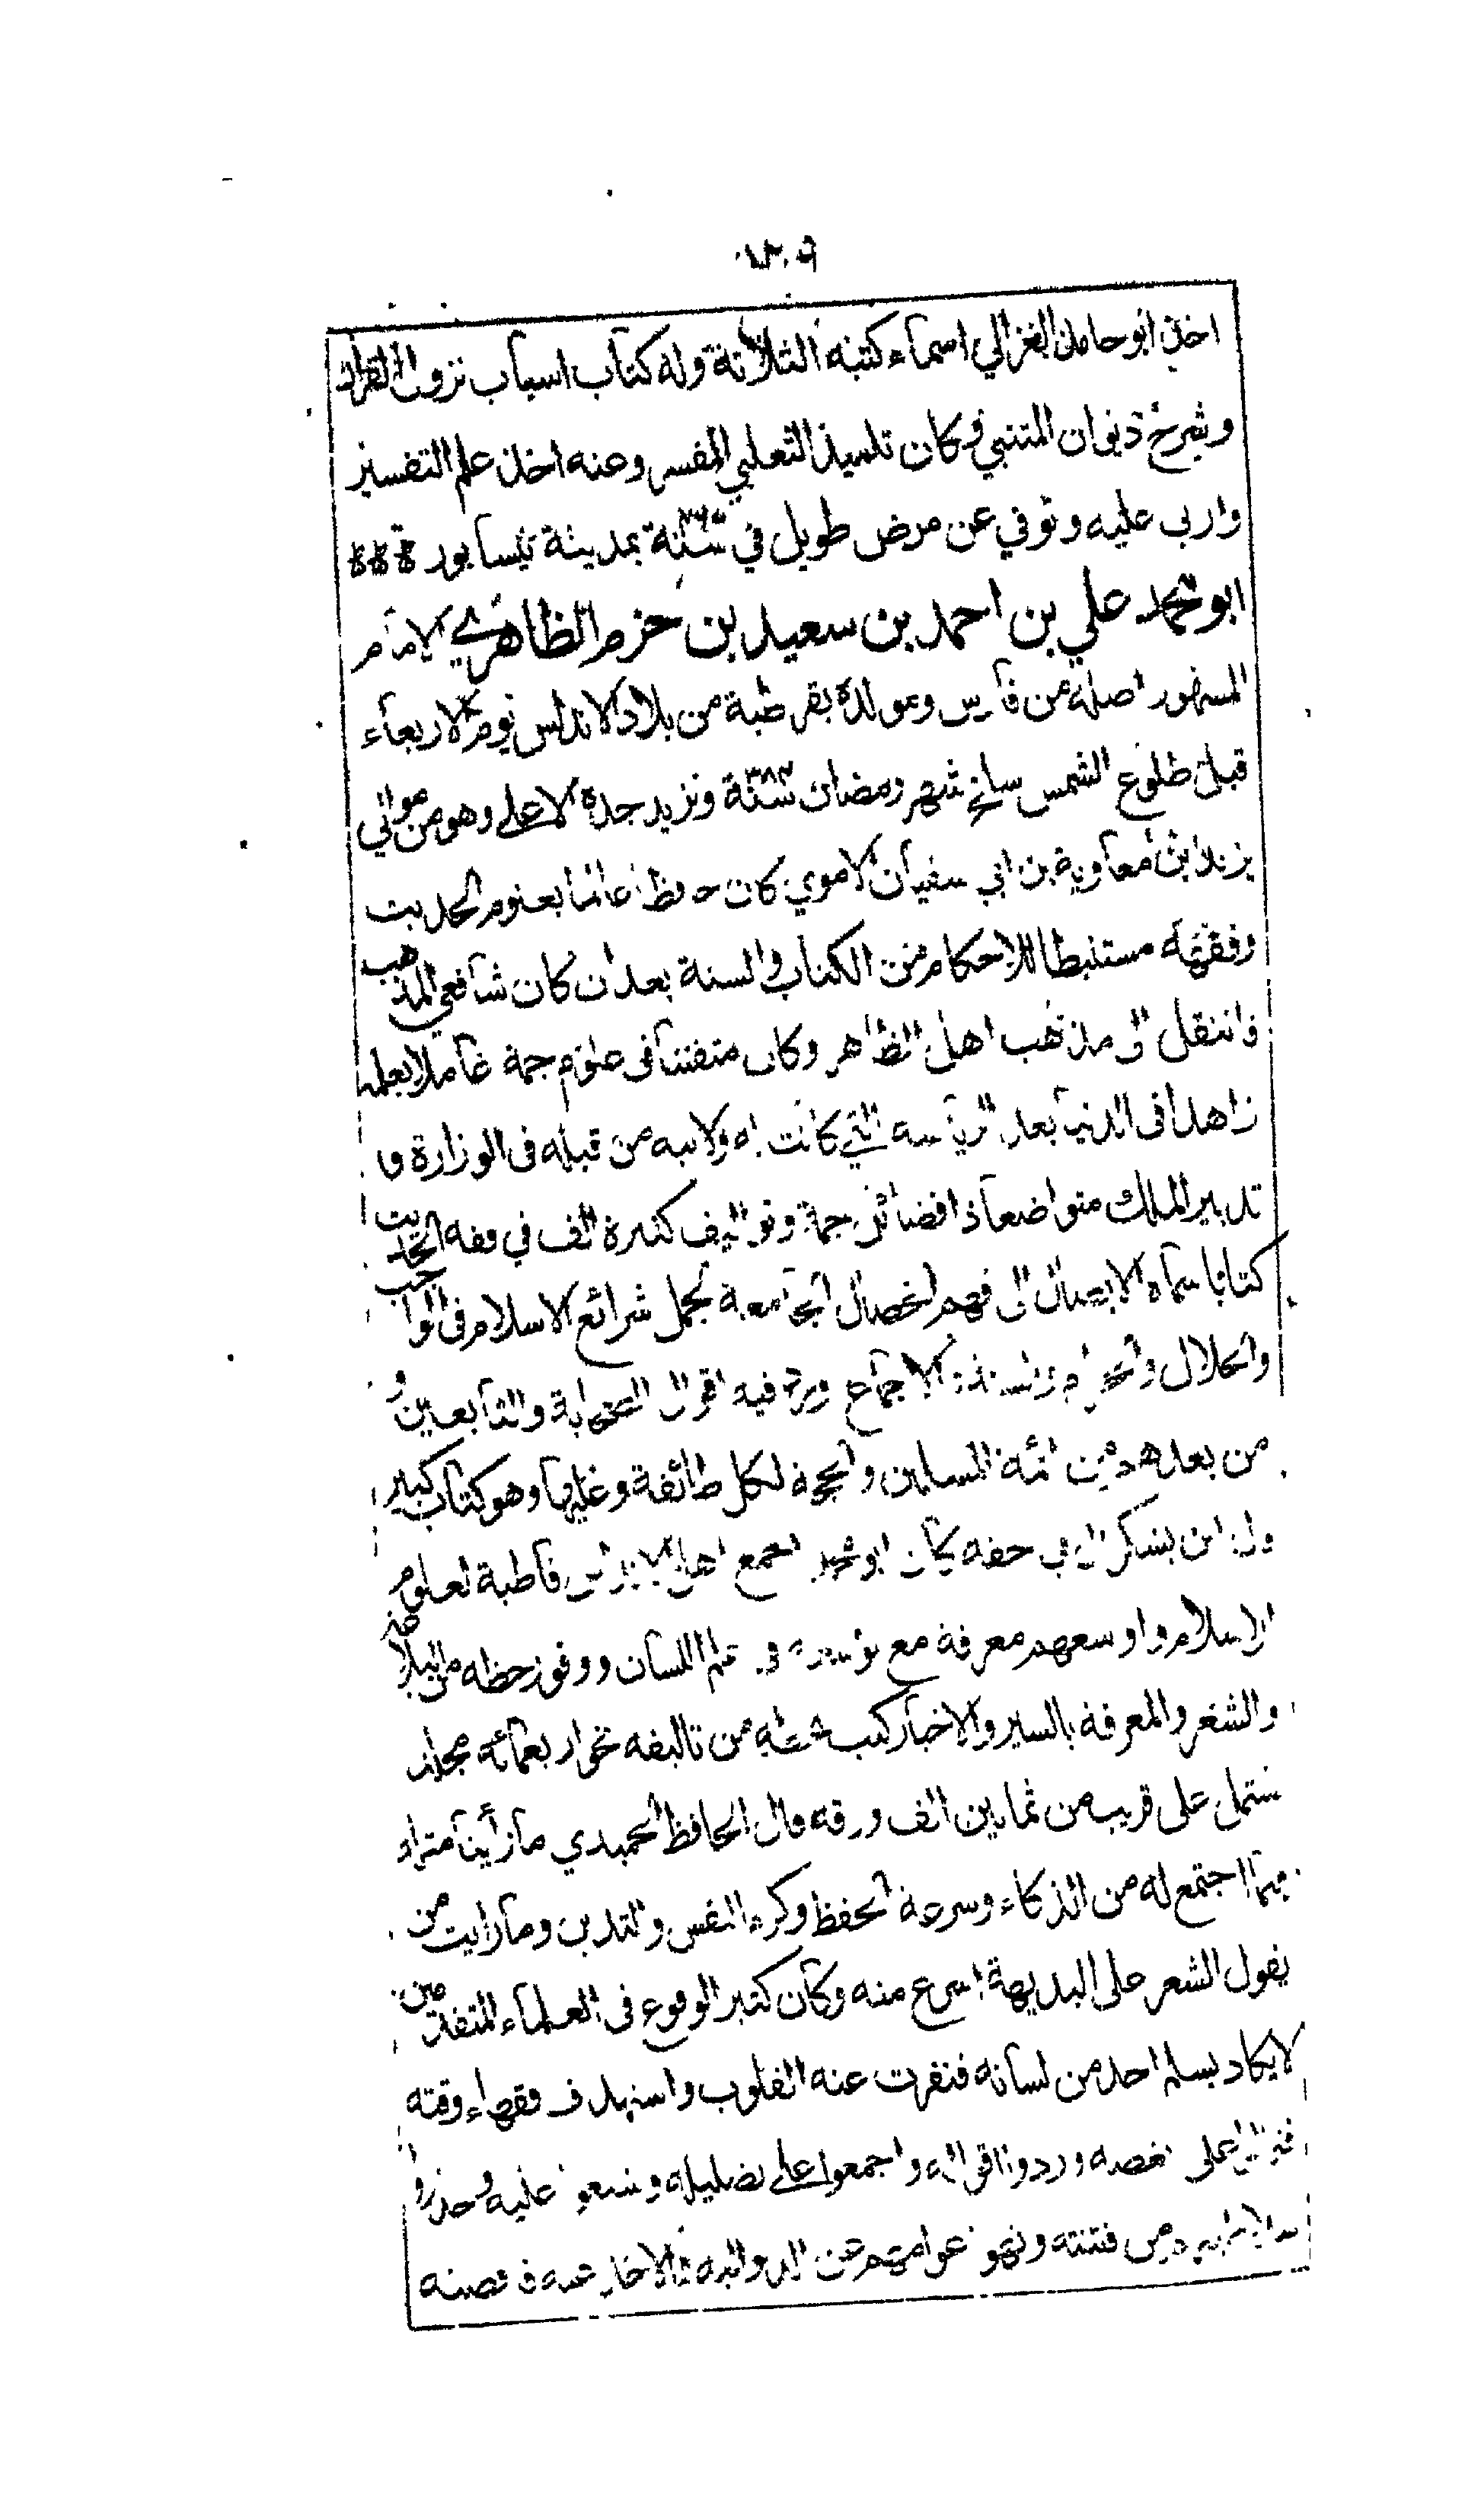 اخذ ابو حامد الغزالي اسمآء كتبه الثلاثة وله كتاب اسباب نزول القران
وشرح ديوان المتنبي وكان تلميذ الثعلبي المفسر وعنه اخذ علم التفسير
واربى عليه وتوفي عن مرض طويل في سنة بمدينة نيسابور
ابو محمد علي بن احمد بن سعيد بن حزم الظاهري الامام
المشهور اصله من فارس ومولده بقرطبة من بلاد الاندلس يوم الاربعآء
قبل طلوع الشمس سلخ شهر رمضان سنة ٣٨٣ ويزيد جده الاعلى وهو من موالي
يزيد ابن معاوية بن ابي سفيان الاموي كان حافظا عالما بعلوم الحديث
وفقهه مستنبطا للاحكام من الكتاب والسنة بعد ان كان شافعي المذهب
فانتقل الى مذهب اهل الظاهر وكان متفننا فى علوم جمة عاملا بعلمه
زاهدا فى الدنيا بعد الرياسه التي كانت له ولابيه من قبله فى الوزارة و
تدبير الملك متواضعا ذا فضائل جمة وتواليف كثيرة الف في فقه الحديث
كتابا سماه الايصال الى فهم الخصال الجامعة لجمل شرائع الاسلام فى الواجب
والحلال والحرام والسنة والاجماع اورد فيه اقوال الصحابة والتابعين و
من بعدهم من ائمة المسلمين والحجة لكل طائفة وعليها وهو كتاب كبير
وقال ابن بشكوال في حقه كان ابو محمد اجمع اهل الاندلس قاطبة لعلوم
الاسلام واوسعهم معرفة مع توسعه في علم اللسان ووفور حظه من البلاغة
والشعر والمعرفة بالسير والاخبار كتب بخطه من تاليفه نحو اربعمائه مجلد
تشتمل على قريب من ثمانين الف ورقه قال الحافظ الحميدي ما رأينا مثله
فيما اجتمع له من الذكاء وسرعة الحفظ وكرم النفس والتدين وما رايت من
يقول الشعر على البديهة اسرع منه وكان كثير الوقوع فى العلمآء المتقدمين
لا يكاد يسلم احد من لسانه فنفرت عنه القلوب واستهدف فقهاء وقته
فتمالؤا على بغضه وردوا اقواله واجمعوا على تضليله وشنعوا عليه وحذروا
سلاطينهم من فتنته ونهوا عوامهم عن الدنو اليه والاخذ عنه فاقصته